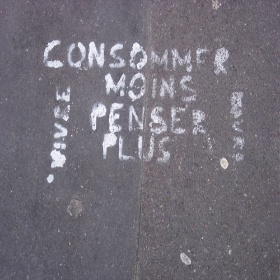 CONSOMMER
MOINS
PENSER
PLUS
VIVRE